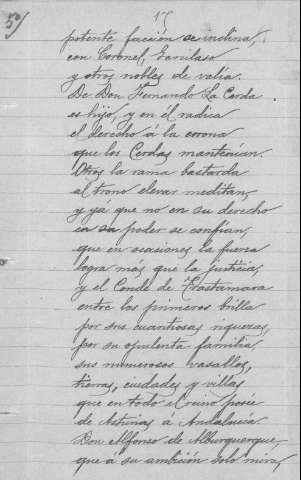 50/ 15
potente facción se inclina,
con Coronel, Garcilaso
y otros nobles de valía.
De Don Fernando La Cerda
es hijo, y en él radica
el derecho á la corona
que los Cerdas mantenían.
Otros la rama bastarda
al trono elevar meditan,
y yá que no en su derecho
en su poder se confían,
que en ocasiones la fuerza
logra más que la justicia,
y el Conde de Trastamara
entre los primeros brilla
por sus cuantiosas riquezas,
por su opulenta familia,
sus numerosos vasallos,
tierras, ciudades y villas
que en todo el reino posee
de Asturias á Andalucía.
Don Alfonso de Alburquerque,
que á su ambición solo mira,